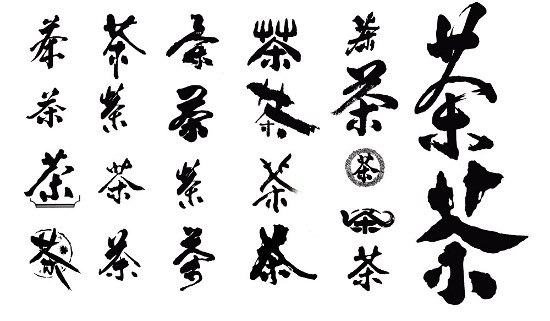 茶 茶 茶 茶
茶 茶 茶 茶
茶 茶 茶 茶
茶 茶 茶 茶
茶
茶
茶
茶
茶
茶
茶